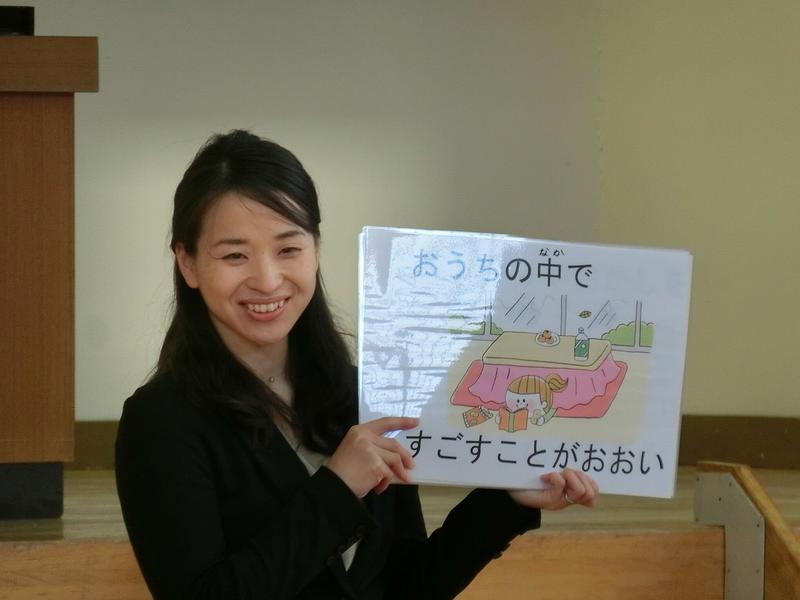 おうちの中で
なか
すごすことがおおい